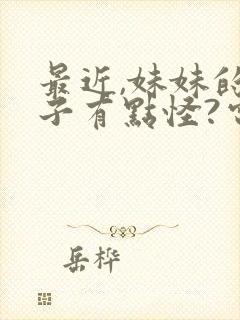 最近,妹妹的
子有點怪?
岳桦